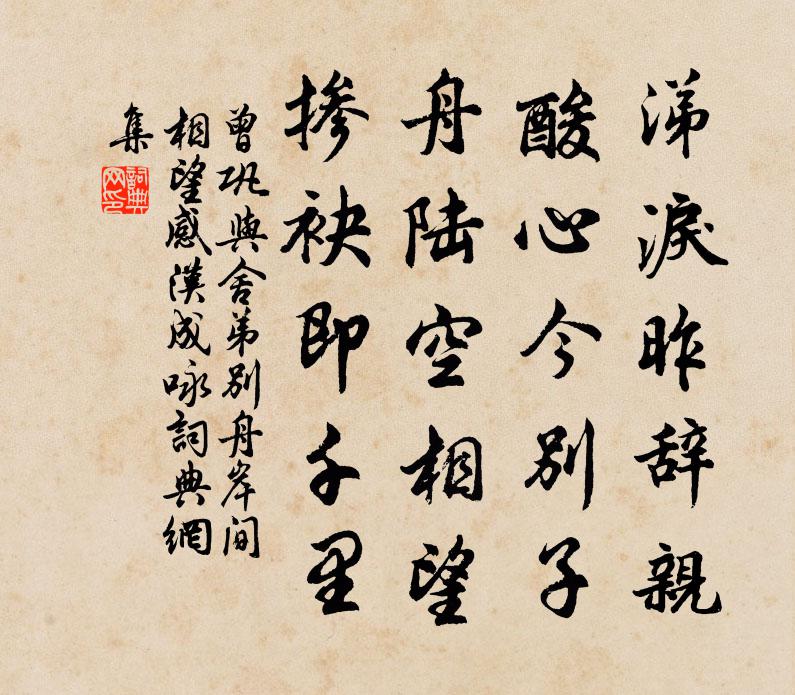 涕淚昨辞親
酸心今別子
舟陆空相望
掺袂即千里
曾巩與舍弟別舟岸间
相望感漢成咏詞典網
集
詞典網印